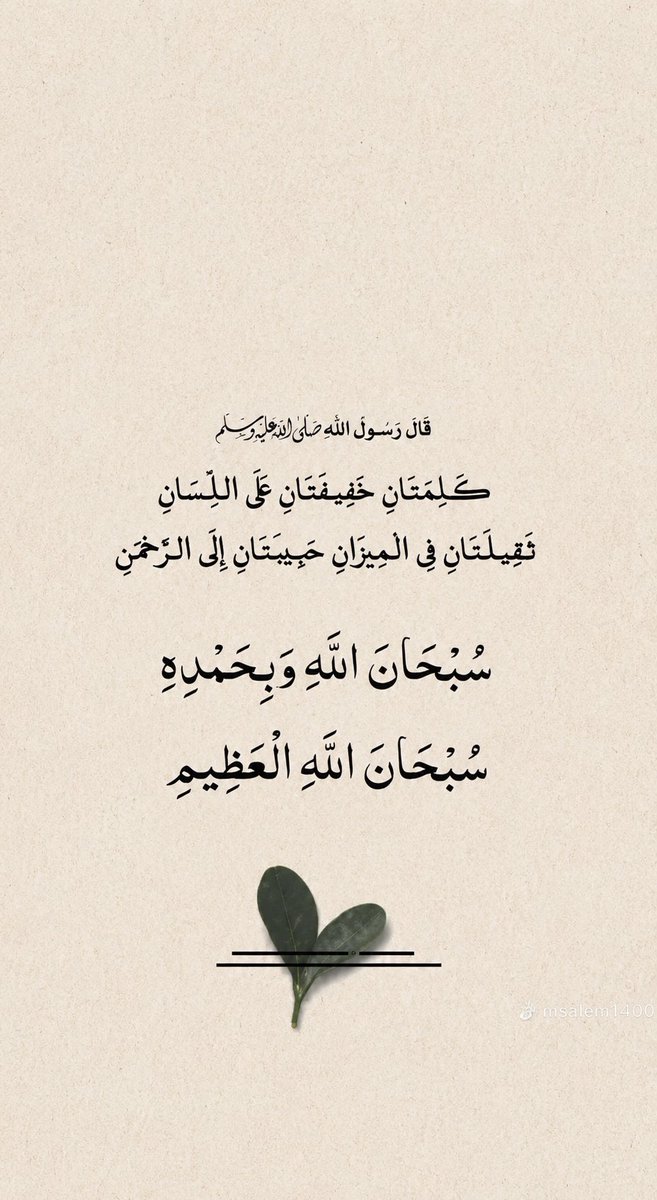 قَالَ رَسُولَ اللهِ صَلَّى اللَّهُ عَلَيْهِ وَسَلَّمَ
كَلِمَتَانِ خَفِيفَتَانِ عَلَى اللِّسَانِ
ثَقِيلَتَانِ فِي الْمِيزَانِ حَبِيبَتَانِ إِلَى الرَّحْمَنِ
سُبْحَانَ اللَّهِ وَبِحَمْدِهِ
سُبْحَانَ اللَّهِ الْعَظِيمِ
msalem1400